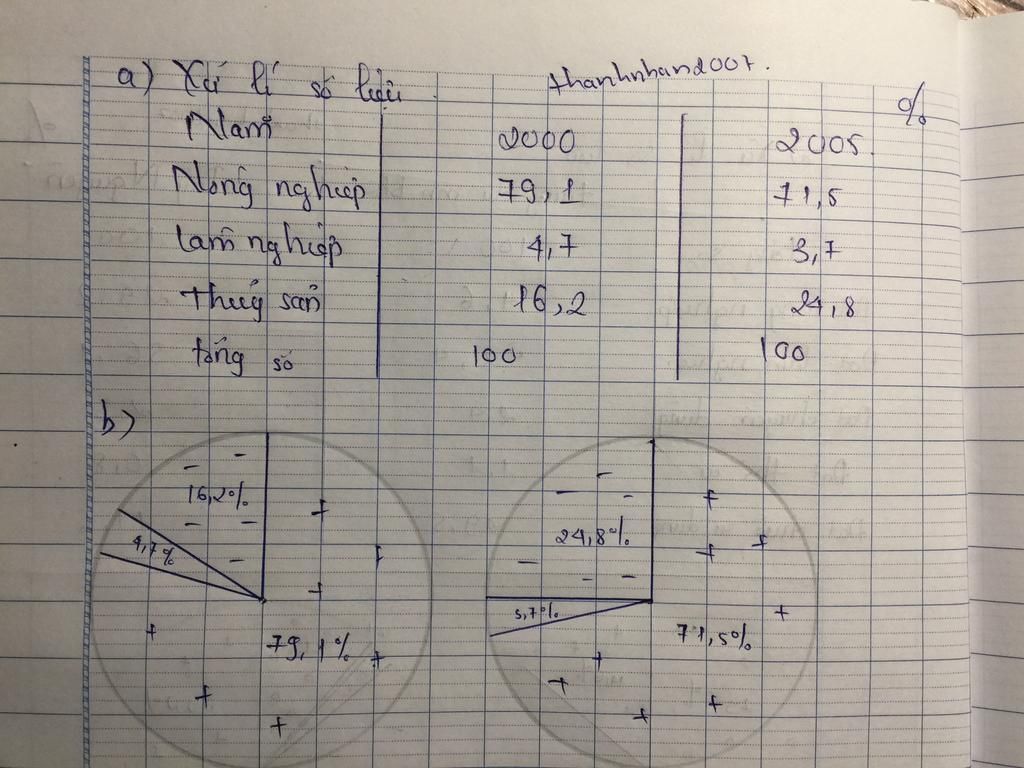 a) Xử lí số liệu. thanhnhan2007.
%
Năm 2000 2005.
Nông nghiệp 79,1 71,5
Lâm nghiệp 4,7 3,7
Thuỷ sản 16,2 24,8
tổng số 100 100
b)
16,2% 24,8%
4,7% 3,7%
79,1% 71,5%